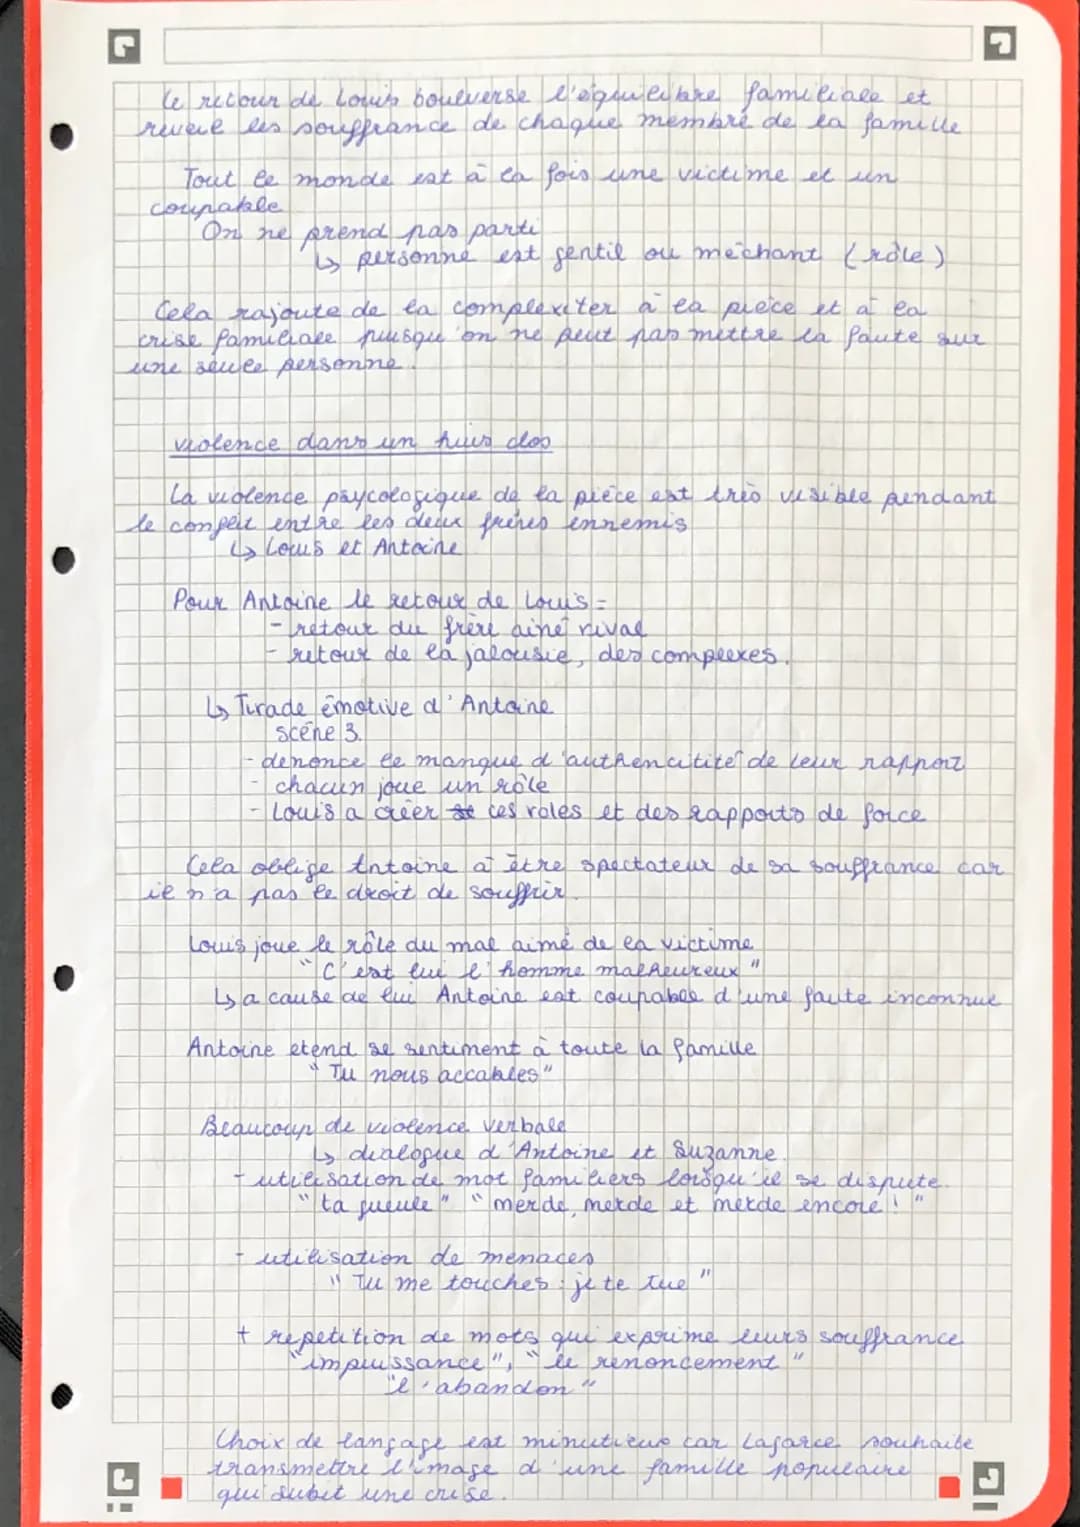 le retour de Louis boulverse l'équilibre familiale et
reveil les souffrance de chaque membre de la famille
Tout le monde est à la fois une victime et un
coupable
On ne prend pas parti
↳ personne est gentil ou méchant (rôle)
Cela rajoute de la complexiter à la pièce et à la
crise familiale puisqu'on ne peut pas mettre la faute sur
une seule personne.
violence dans un huis clos
La violence psycologique de la pièce est très visible pendant
le conflit entre les deux frères ennemis
↳ Louis et Antoine
Pour Antoine le retour de Louis =
- retour du frère ainé rival
- retour de la jalousie, des complexes.
↳ Tirade émotive d'Antoine
scène 3.
- denonce le manque d'authencitité de leur rapport
- chacun joue un rôle
- Louis a créer ces roles et des rapports de force
Cela oblige Antoine à être spectateur de sa souffrance car
il n'a pas le droit de souffrir.
Louis joue le rôle du mal aimé de la victime
"C'est lui l'homme malheureux"
↳ a cause de lui Antoine est coupable d'une faute inconnue
Antoine etend se sentiment à toute la famille
"Tu nous accables"
Beaucoup de violence verbale
↳ dialogue d'Antoine et Suzanne.
- utilisation de mot familiers lorsqu'il se dispute.
"ta gueule" "merde, merde et merde encore!"
- utilisation de menaces
"Tu me touches : je te tue"
+ repetition de mots qui exprime leurs souffrance
"impuissance", "le renoncement"
"l'abandon"
Choix de langage est minutieux car Lagarce souhaite
transmettre l'image d'une famille populaire
qui subit une crise.